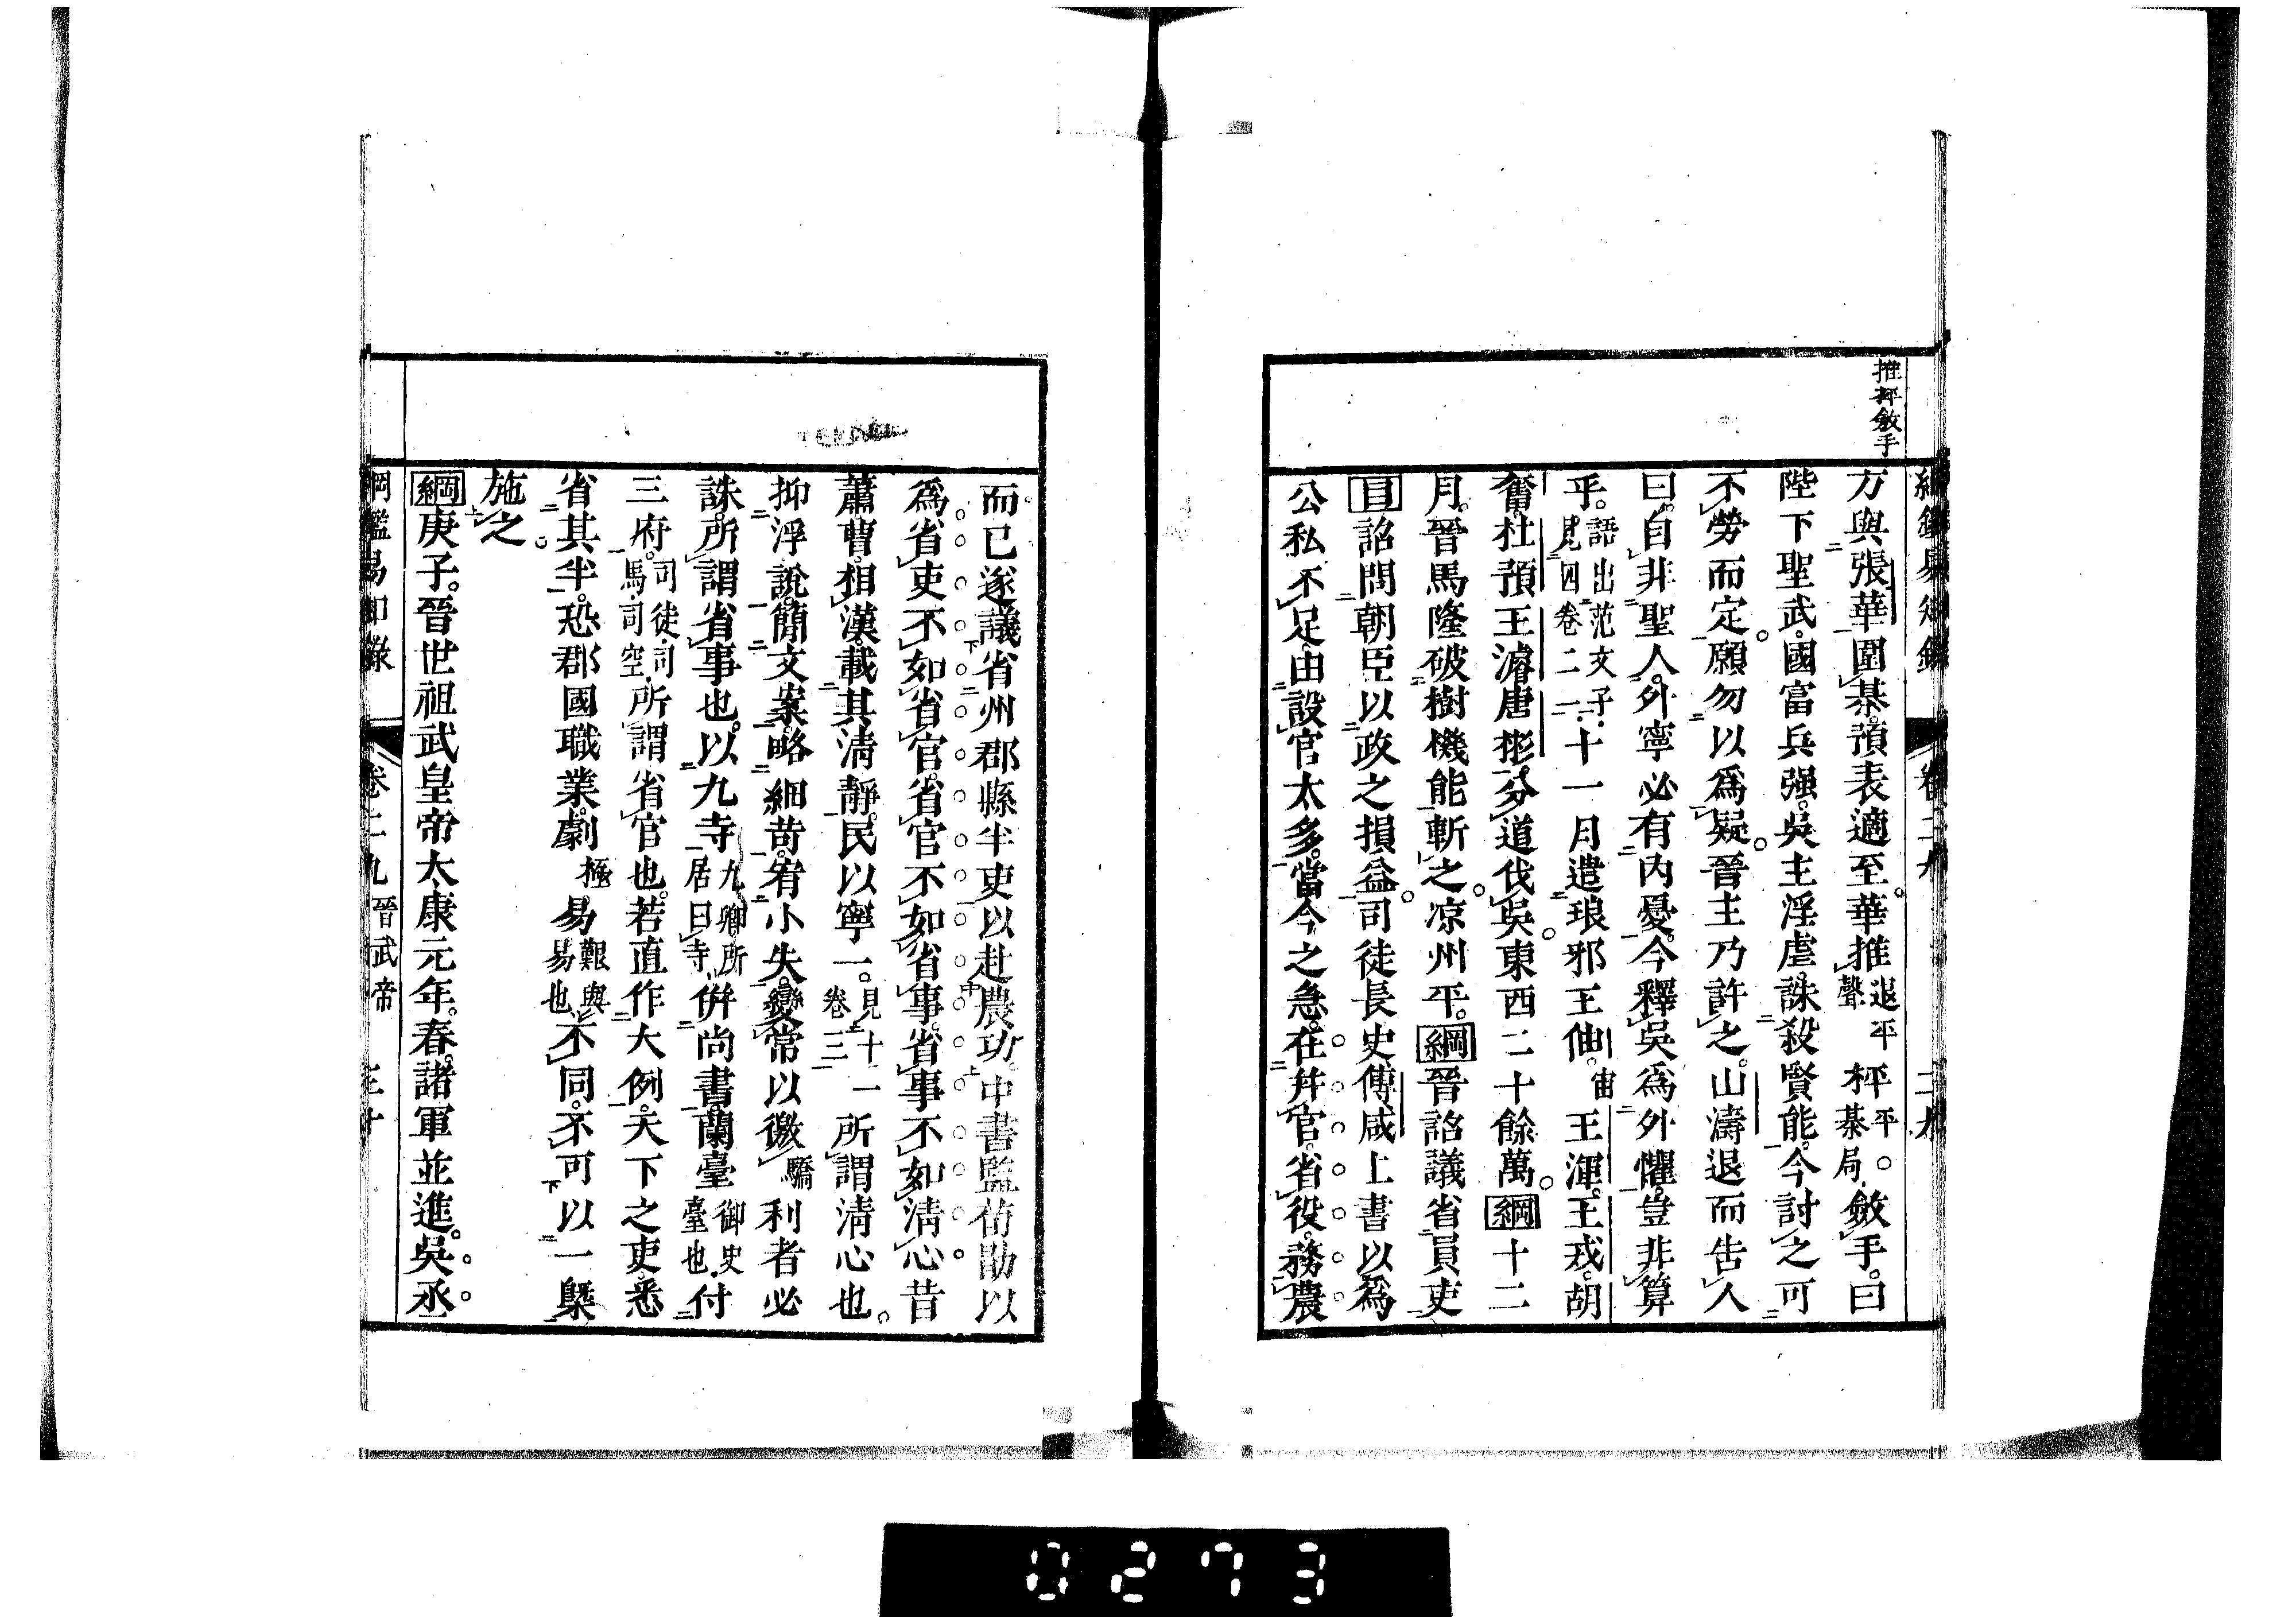 推枰斂手
方與張華圍棊。預表適至。華推退平聲枰平。棊局。斂手。曰
陛下聖武。國富兵强。吳主淫虐。誅殺賢能。今討之可
不勞而定。願勿以爲疑。晉主乃許之。山濤退而告人
曰。自非聖人。外寧必有內憂。今釋吳爲外懼。豈非算
乎。語出范文子。見四卷二一。十一月遣琅邪王伷。宙王渾。王戎。胡
奮。杜預王濬唐彬。分道伐吳。東西二十餘萬。綱十二
月。晉馬隆破樹機能斬之。凉州平。綱晉詔議省員吏
目詔問朝臣以政之損益。司徒長史傅咸上書以爲
公私不足。由設官太多。當今之急。在并官。省役。務農
而已遂議省州郡縣半吏以赴農功。中書監荀勖以
爲省吏不如省官。省官不如省事。省事不如淸心昔
蕭曹相漢。載其淸靜。民以寧一。見十一卷三所謂淸心也。
抑浮說。簡文案。略細苛。宥小失。變常以徼驕利者必
誅。所謂省事也。以九寺九卿所居曰寺。併尚書。蘭臺御史臺也。付
三府。司徒。司馬。司空。所謂省官也。若直作大例。天下之吏。悉
省其半。恐郡國職業。劇極易艱與易也。不同。不可以一槩
施之。
綱庚子。晉世祖武皇帝太康元年。春。諸軍並進。吳丞
綱鑑易知錄 卷二九 晉武帝 三十